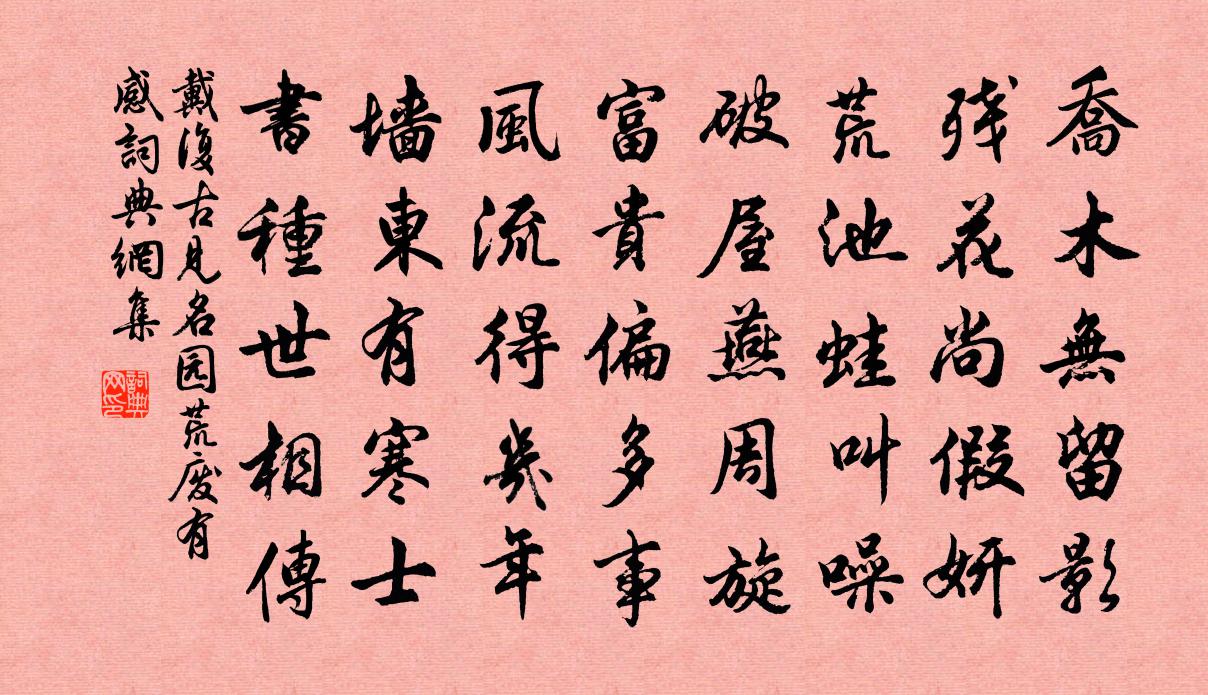 喬木無留影
残花尚假妍
荒池蛙叫噪
破屋燕周旋
富貴偏多事
風流得幾年
墻東有寒士
書種世相傳
戴復古見名园荒废有
感詞典網集
詞典网印